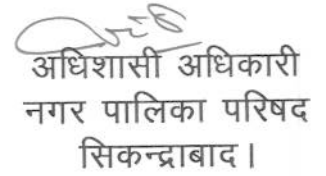 अधिशासी अधिकारी
नगर पालिका परिषद
सिकन्द्राबाद।